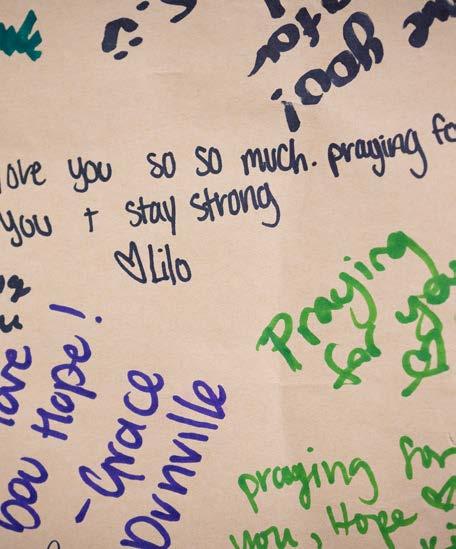 you!
love you so so much. praying fo
you + stay strong
♡Lilo
Praying
for you
♡
love
you Hope!
-Grace
Dunville
praying for
you, Hope ♡